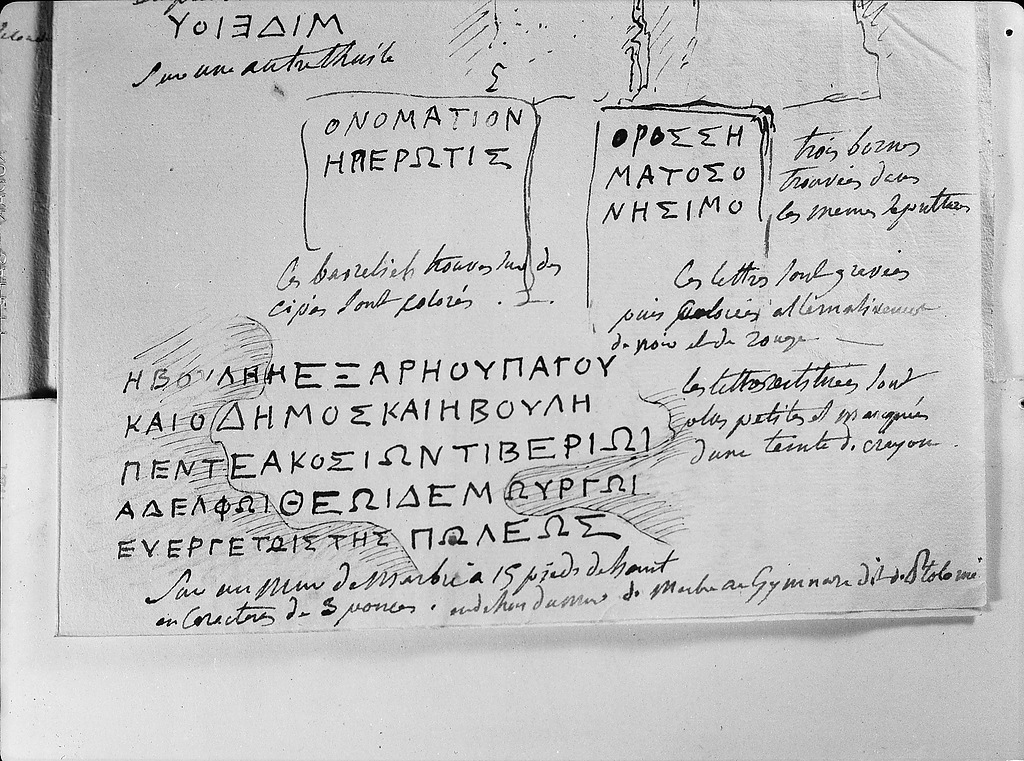 ΥΟΙΞΔΙΜ
Sur une autre thuile
Σ
ΟΝΟΜΑΤΙΟΝ
ΗΠΕΡΩΤΙΣ
ΟΡΟΣΣΗ
ΜΑΤΟΣΟ
ΝΗΣΙΜΟ
trois bornes
trouvées dans
les memes
Ces basreliefs trouvés sur des
cipes sont colorés .
Ces lettres sont gravées
puis coloriées alternativement
de noir et de rouge
ΗΒΟΥΛΗΗΕΞΑΡΗΟΥΠΑΓΟΥ
ΚΑΙΟΔΗΜΟΣΚΑΙΗΒΟΥΛΗ
ΠΕΝΤΕΑΚΟΣΙΩΝΤΙΒΕΡΙΩΙ
ΑΔΕΛΦΩΙΘΕΩΙΔΕΜΩΥΡΓΩΙ
ΕΥΕΡΓΕΤΩΙΣΤΗΣ ΠΩΛΕΩΣ
les lettres sont
plus petites et marquées
d'une teinte de crayon .
Sur un mur de Marbre a 15 pieds de haut
en Caracteres de 3 pouces . en dehors du mur de Marbre au Gymnase dit de Ptolomé